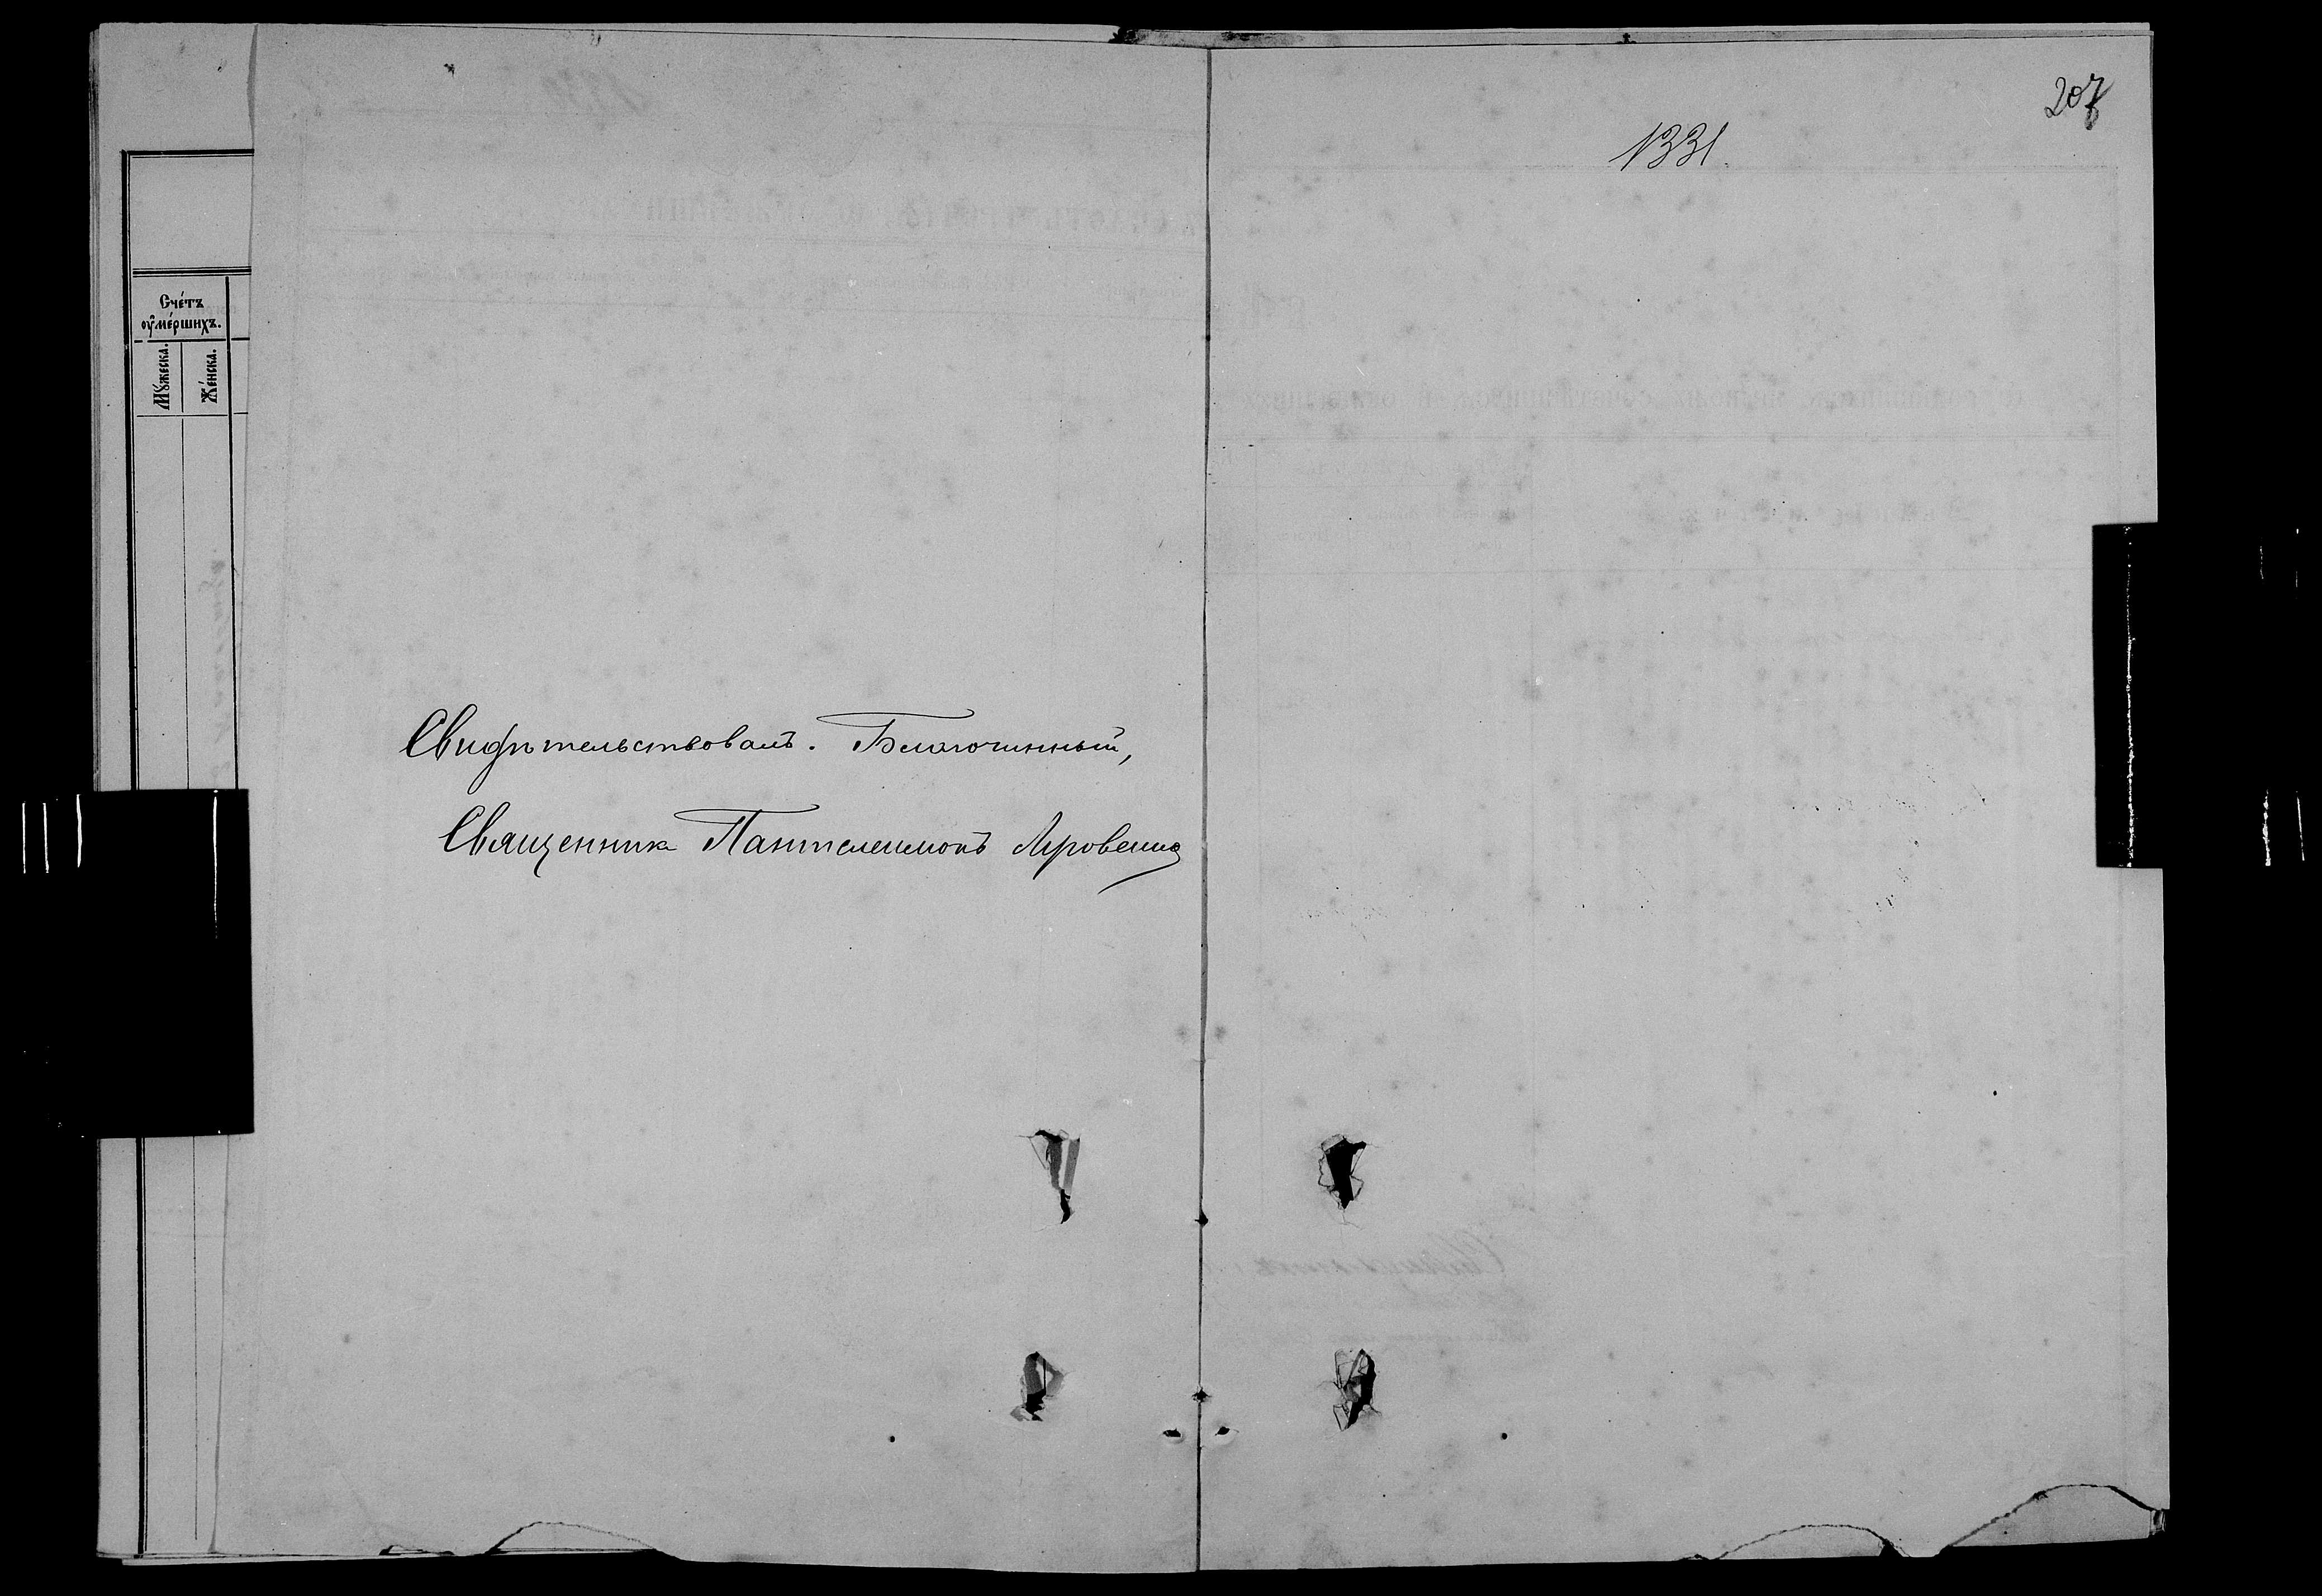 207
1331.
Счéтъ
ᲂу҆мéршихъ.
Мꙋ́жеска.
Жéнска.
Свидѣтельствовалъ. Благочинный,
Священникъ Пантелеимонъ